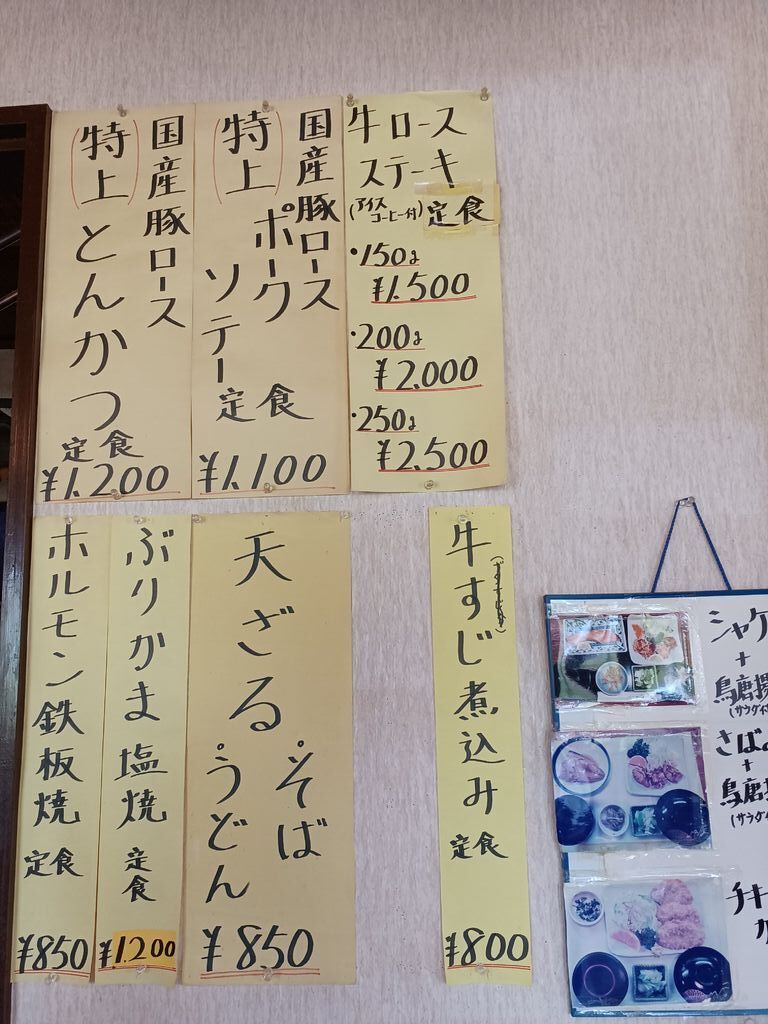 国産豚ロース
(特上)とんかつ
定食
¥1.200
国産豚ロース
(特上)ポーク
ソテー
定食
¥1.100
牛ロース
ステーキ
(アイス
コーヒー付)
定食
・150g
¥1.500
・200g
¥2.000
・250g
¥2.500
ホルモン鉄板焼
定食
¥850
ぶりかま塩焼
定食
¥1.200
天ざる
・そば
・うどん
¥850
牛すじ煮込み
定食
¥800
シャケ
+
鳥唐揚
(サラダ
さば
+
鳥唐揚
(サラダ
チキ